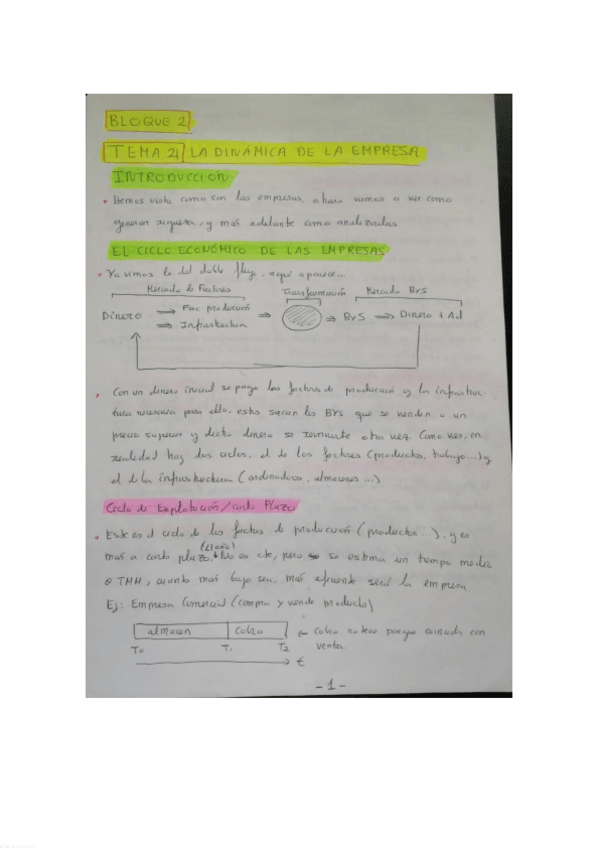 BLOQUE 2
TEMA 2 LA DINÁMICA DE LA EMPRESA
INTRODUCCION
• Hemos visto como son las empresas, ahora vamos a ver como
generan riqueza, y más adelante como analizarlas
EL CICLO ECONÓMICO DE LAS EMPRESAS
• Ya vimos lo del doble flujo, aquí aparece...
Mercado de Factores Transformación Mercado BYS
Dinero ⇒ Fac producción ⇒ ⇒ BYS ⇒ Dinero +
⇒ Infraestructura
• Con un dinero inicial se paga los factores de producción y la infraestruc-
tura necesaria para ello, estos sacan los BYS que se venden a un
precio superior y dicho dinero se reinvierte otra vez. Como ves, en
realidad hay dos ciclos, el de los factores (productos, trabajo...) y
el de la infraestructura (ordenadores, almacenes...)
Ciclo de Explotación/corto Plazo
• Este es el ciclo de los factores de producción (productos...), y es
más a corto plazo, No es cte, pero se estima un tiempo medio
(<1 año)
o TMM, cuanto más bajo sea, más eficiente será la empresa
Ej: Empresa Comercial (compra y vende producto)
almacen cobro ← Cobro no tiene porque coincidir con
T0 T1 T2 venta
t
-1-